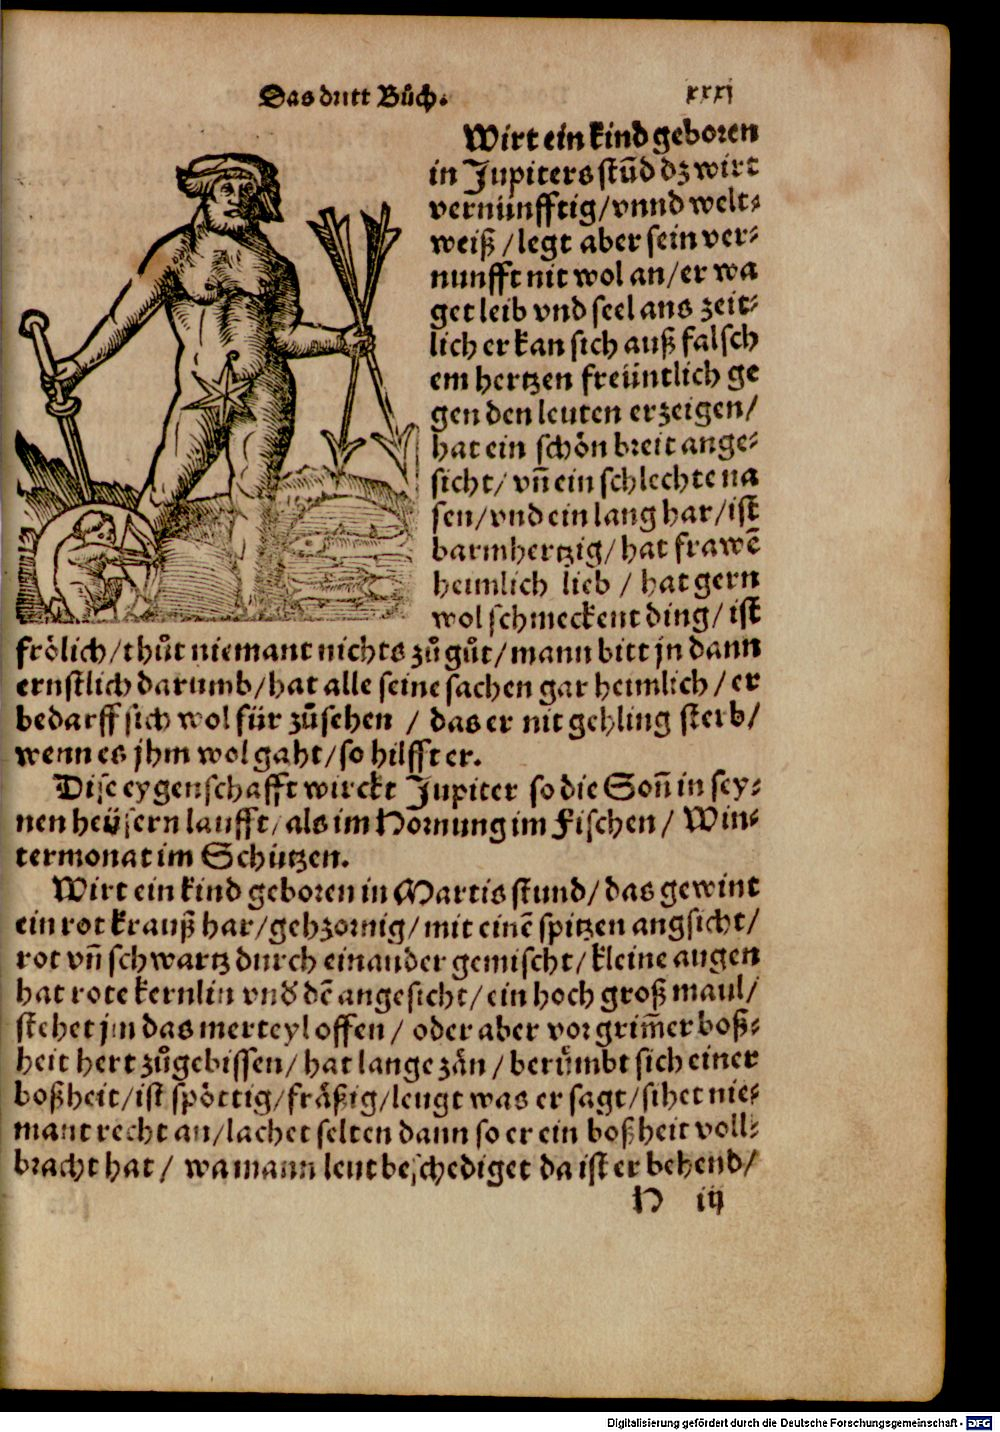 Das dritt Bůch.
xxxj
Wirt ein kind geboren
in Jupiters stūd dz wirt
vernünfftig/vnnd welt⸗
weiß/legt aber sein ver⸗
nunfft nit wol an/er wa
get leib vnd seel ans zeit⸗
lich er kan sich auß falsch
em hertzen freüntlich ge
gen den leuten erzeigen/
hat ein schön breit ange⸗
sicht/vñ ein schlechte na
sen/vnd ein lang har/ist
barmhertzig/hat frawē
heimlich lieb/hat gern
wolschmeckent ding/ist
frölich/thůt niemant nichts zů gůt/mann bitt jn dann
ernstlich darumb/hat alle seine sachen gar heimlich/er
bedarff sich wol für zůsehen/das er nit gehling sterb/
wenn es jhm wol gaht/so hilfft er.
Dise eygenschafft wirckt Jupiter so die Soñ in sey⸗
nen heüsern laufft/als im Hornung im Fischen/Win⸗
termonat im Schützen.
Wirt ein kind geboren in Martis stund/das gewint
ein rot krauß har/gehzornig/mit einē spitzen angsicht/
rot vñ schwartz durch einander gemischt/kleine augen
hat rote kernlin vnd dē angesicht/ein hoch groß maul/
stehet jm das merteyl offen/oder aber vor grim̃er boß⸗
heit hert zůgebissen/hat lange zän/berůmbt sich einer
boßheit/ist spöttig/fräßig/leugt was er sagt/sihet nie⸗
mant recht an/lachet selten dann so er ein boßheit voll⸗
bracht hat/wa mann leut beschediget da ist er behend/
H iij
Digitalisierung gefördert durch die Deutsche Forschungsgemeinschaft - DFG